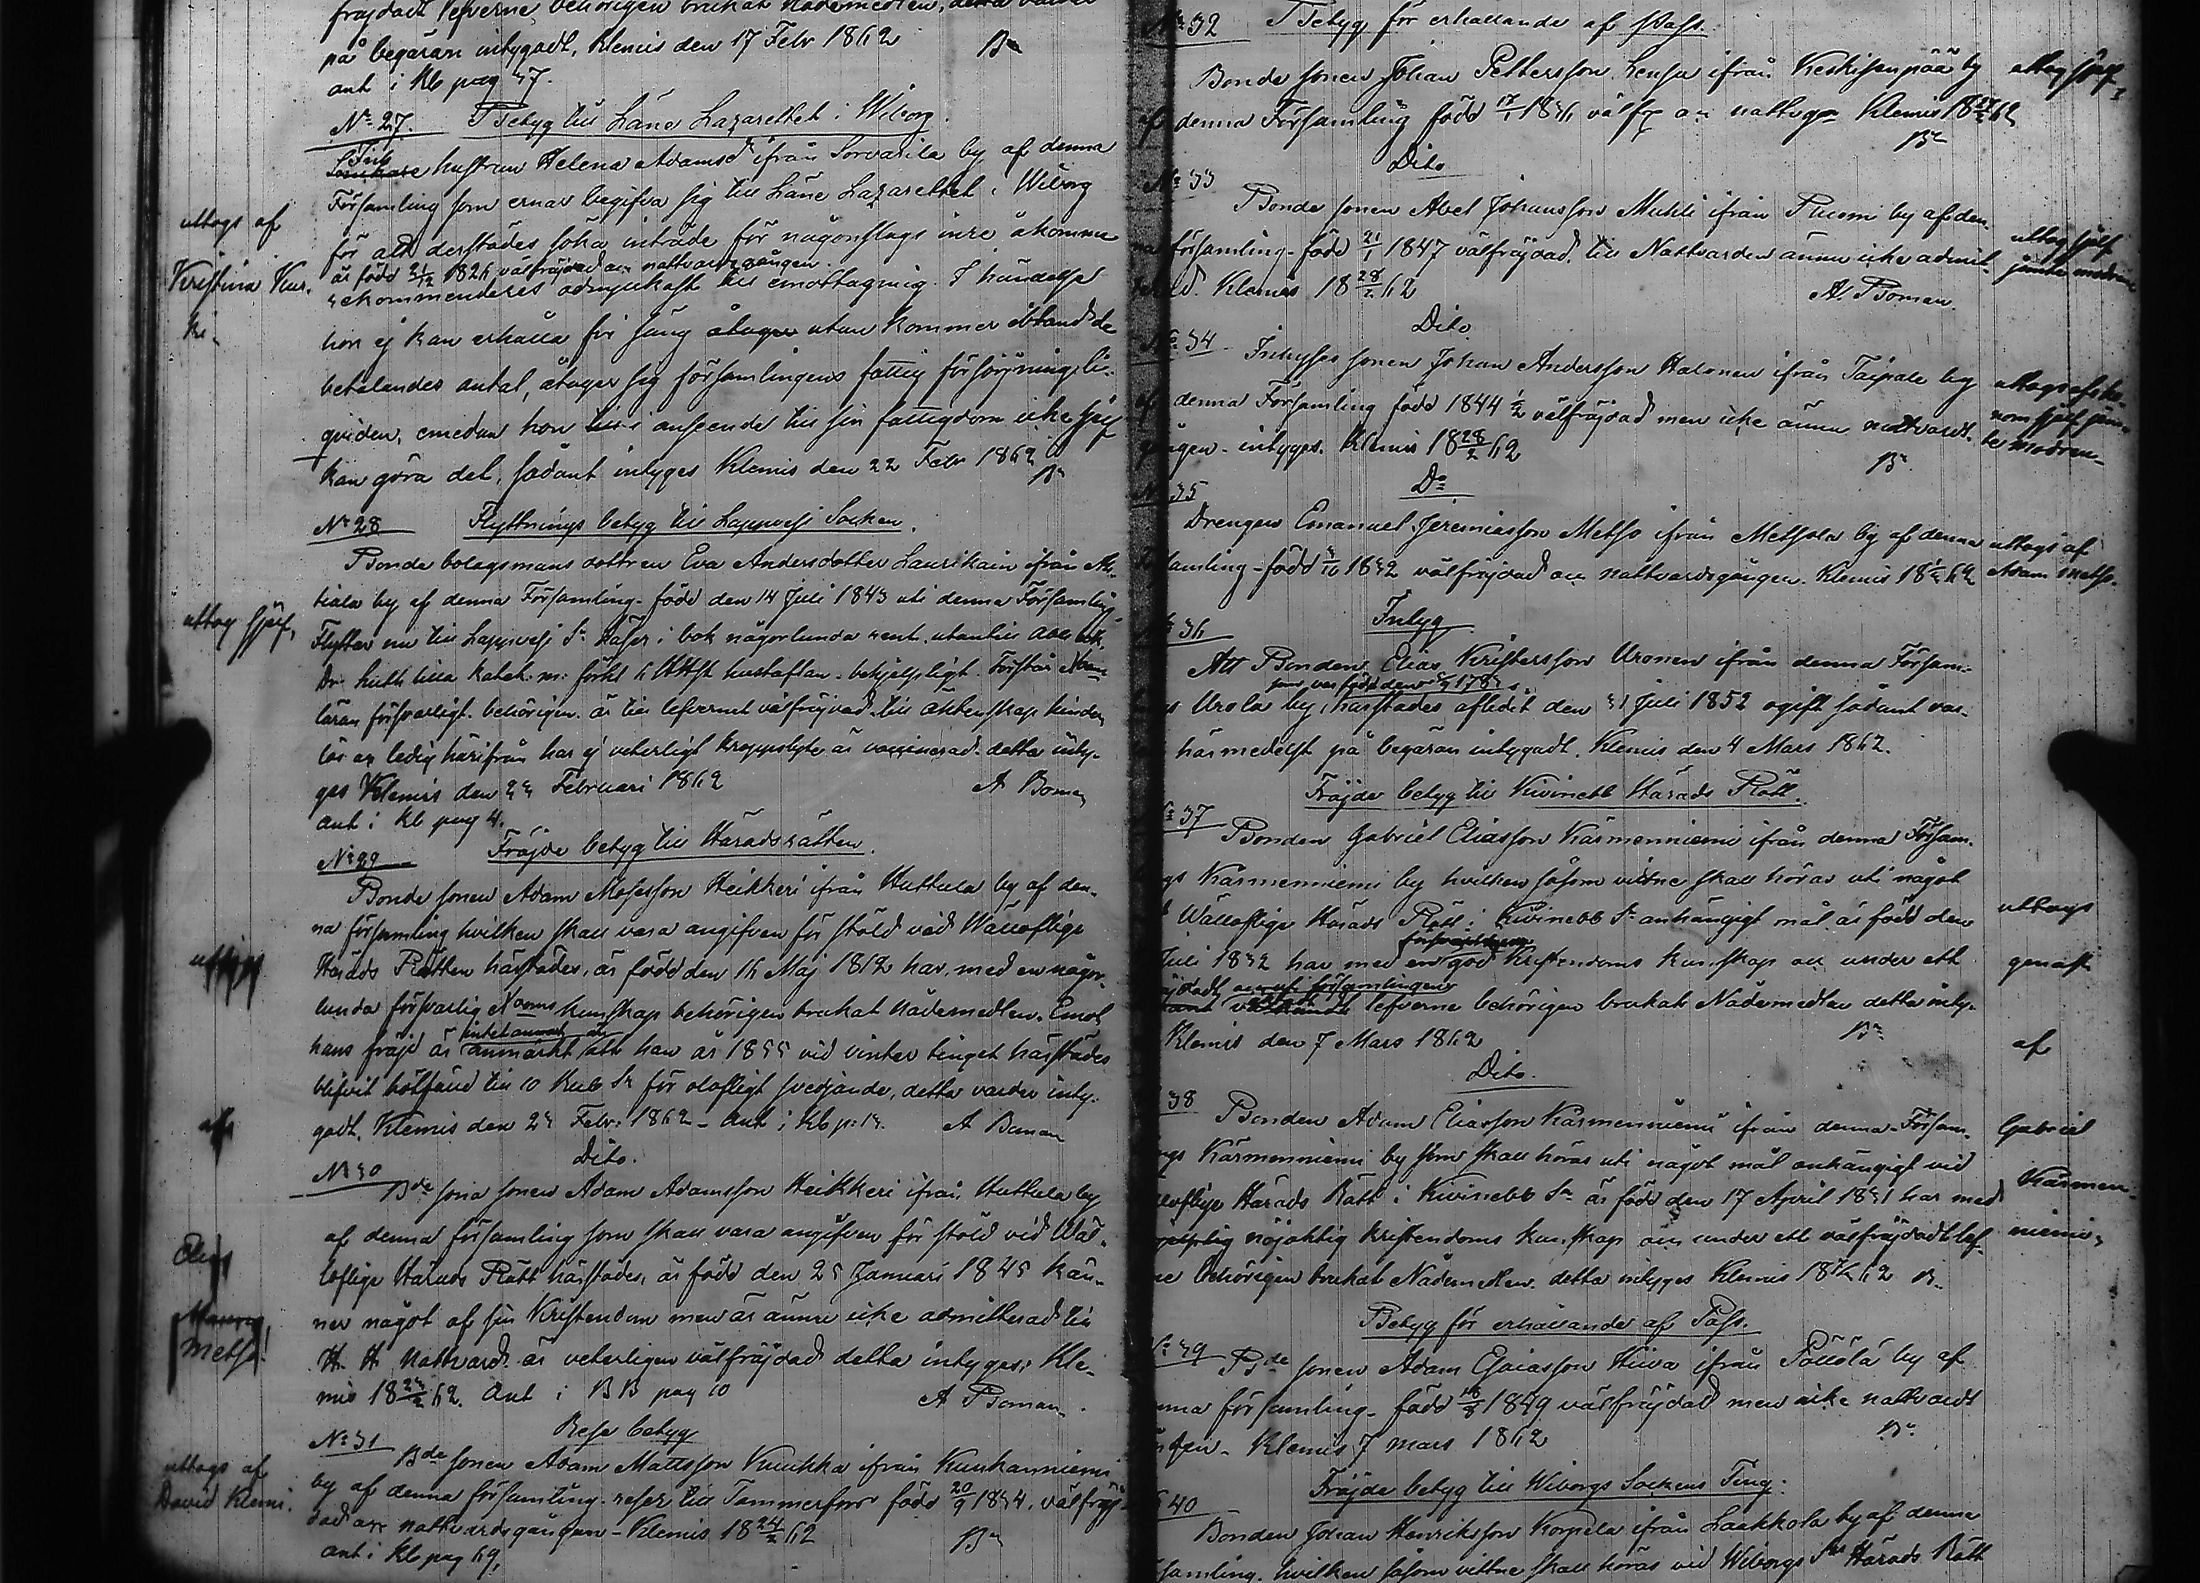 på begäran intygadt, Klemis den 17 Febr 1862 Bn
ant i Kb pag 47.
No 27. Betyg till Läne Lazarettet i Wiborg.
hustrun Helena Adamsdr ifrån Sorvarila by af denna
Församling som ernar begifva sig till Läne Lazarettet i Wiborg
för att derstädes söka inträde för någonslags inre åkomma
är född 1826 välfräjdad och nattvardsgången.
rekommenderes ödmjukast till emottagning. I händelse
hon ej kan erhålla fri säng utan kommer
betalandes antal, åtager sig församlingens fattig försörjnings
emedan hon i anseende till sin fattigdom icke sjelf
kan göra det, sådant intyges Klemis den 22 Febr 1862
Bn
uttogs af
Kristina Kur.
ki.
No 28 Flyttnings betyg till Lappvesi Socken.
Bonde bolagsmans dottren Eva Andersdotter Laurikain ifrån
tiala by af denna Församling. född den 14 Juli 1843 uti denna Församling
Flyttar nu till Lappvesi Sn läser i bok någorlunda rent. utantill
Dr Luth lilla katek: m: förkl H hustaflan. behjelpligt. Förstår
läran försvarligt. behörigen. är till lefvernet välfräjdad till äktenskap hinder
lös och ledig härifrån har ej veterligt kroppslyte är vaccinerad. detta inty-
ges Klemis den 23 Februari 1862 A Boman
ant i Kb pag 4.
uttog sjelf,
No 29 Fräjde betyg till Häradsrätten.
Bonde sonen Adam Mosesson Heikkeri ifrån Huttula by af den-
na församling hvilken skall vara angifven för stöld vid Wälloflige
Härads Rätten härstädes, är född den 16 Maj 1812 har, med en någor-
lunda försvarlig kunskap behörigen brukat nådemedlen. Emot
hans fräjd är intet annat
anmärkt än att han år 1855 vid vinter tinget härstädes
blifvit bötfäld till 10 Rub Sr för olofligt svedjande, detta varder inty-
gadt. Klemis den 23 Febr: 1862 – ant i Kb p: 13. A Boman
Dito.
No 30 Bde sona sonen Adam Adamsson Heikkeri ifrån Huttula by
af denna församling som skall vara angifven för stöld vid Wäl-
loflige Härads Rätt härstädes, är född den 25 Januari 1845 kän-
ner något af sin Kristendom men är ännu icke admitterad till
H. H. Nattvard. är veterligen välfräjdad detta intyges; Kle-
mis 18 23/2 62. Ant i BB pag 10 A Boman.
af
Elias
Metso!
Rese betyg
No 31 Bde sonen Adam Mattsson Kuukka ifrån Kuukanniemi
by af denna församling. reser till Tammerfors född 20/9 1834. välfräj-
dad och nattvardsgången – Klemis 18 24/2 62 Bn
ant i Kb pag 69.
uttogs af
David Klemi.
No 32 Betyg för erhållande af Pass.
Bonde sonen Johan Pettersson Lensu ifrån Keskisenpää by
af denna Församling född 17/1 1836 välfr och nattvgn Klemis 18 62
Bn
uttog sjelf,
Dito
No 33
Bonde sonen Abel Johansson Muhli ifrån Suomi by af den-
na församling – född 21/1 1847 välfräjdad. till Nattvarden ännu icke admit-
terad. Klemis 18 28/2 62 A. Boman.
uttog sjelf
jemte modren
Dito
No 34. Inhyses sonen Johan Andersson Halonen ifrån Taipale by
af denna Församling född 1844 1/2 välfräjdad men icke ännu nattvards-
gången – intyges. Klemis 18 28/2 62
Bn
nom sjelf jem-
te modren –
Do
No 35
Drengen Emanuel Jeremiasson Metso ifrån Metsola by af denna
Församling – född 1832 välfräjdad och nattvardsgången. Klemis 18 62
uttogs af
Adam Metso.
Intyg
No 36
Att Bonden Elias Kristersson Uronen ifrån denna Försam-
som var född den
Urola by, härstädes aflidit den 31 Juli 1852 ogift sådant var-
härmedelst på begäran intygadt. Klemis den 4 Mars 1862.
Fräjde betyg till Kivinebb Härads Rätt.
No 37 Bonden Gabriel Eliasson Kärmenniemi ifrån denna Försam-
gs Kärmenniemi by hvilken såsom vittne skall höras uti något
Wälloflige Härads Rätt i Kivinebb Sn anhängigt mål. är född den
Juli 1832 har med en god Kristendoms kunskap och under ett
lefverne behörigen brukat Nådemedlen detta inty-
Klemis den 7 Mars 1862 Bn
uttogs
genast
af
Gabriel
Kärmen-
niemi,
Dito.
38 Bonden Adam Eliasson Kärmenniemi ifrån denna Försam-
gs Kärmenniemi by som skall höras uti något mål anhängigt vid
loflige Härads Rätt i Kivinebb Sn är född den 17 April 1831 har med
nöjaktig kristendoms kunskap och under ett välfräjdadt lef-
ne behörigen brukat Nådemedlen. detta intyges Klemis 18 62 B.
Betyg för erhållande af Pass.
No 39 Bde sonen Adam Esaiasson Hiiva ifrån Pöllölä by af
nna församling – född 1849 välfräjdad men icke nattvards
gången – Klemis 7 mars 1862 Bn
Fräjde betyg till Wiborgs Sockens Ting:
No 40
Bonden Johan Henriksson Korpela ifrån Laakkola by af denna
samling. hvilken såsom vittne skall höras vid Wiborgs Sns Härads Rätt